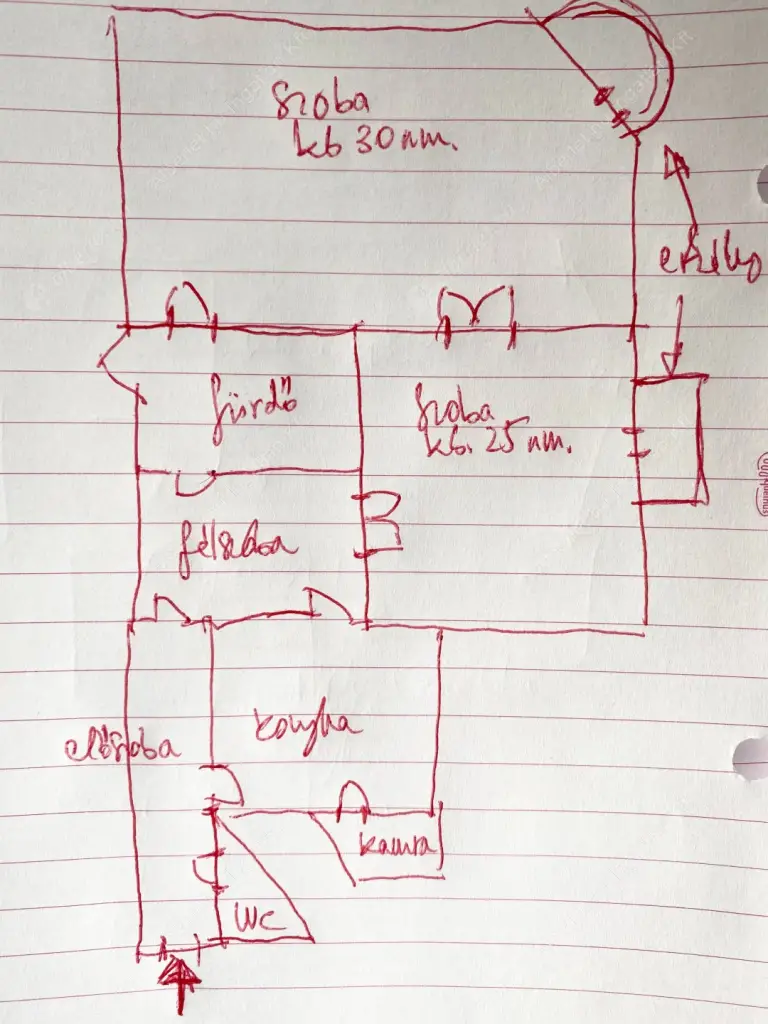 Szoba
kb 30 nm.
erkély
fürdő
szoba
kb. 25 nm.
félszoba
előszoba
konyha
kamra
WC